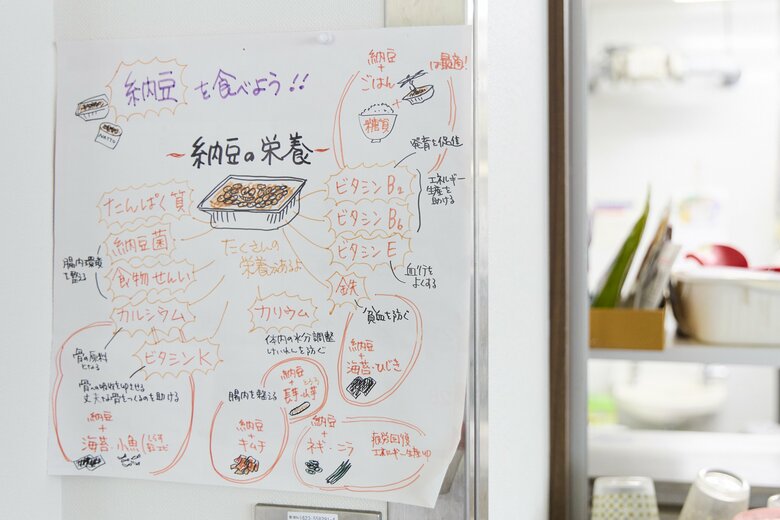 納豆を食べよう!!
NATTO
納豆
+
ごはん
は最高!
+
糖質
~納豆の栄養~
発育を促進
エネルギー
生産を
助ける
たんぱく質
納豆菌
食物せんい
カルシウム
ビタミンK
腸内環境
を整える
たくさんの
栄養があるよ
ビタミンB2
ビタミンB6
ビタミンE
血行を
よくする
鉄
貧血を防ぐ
カリウム
体内の水分調整
けいれんを防ぐ
骨の原料
となる
骨への吸収をゆうせる
丈夫な骨をつくるのを助ける
納豆
+
海苔・小魚
しらす
納豆
+
海苔・ひじき
腸内を整える
納豆
+
キムチ
納豆
+
長芋・山芋
とろろ
納豆
+
ネギ・ニラ
疲労回復
エネルギー生産